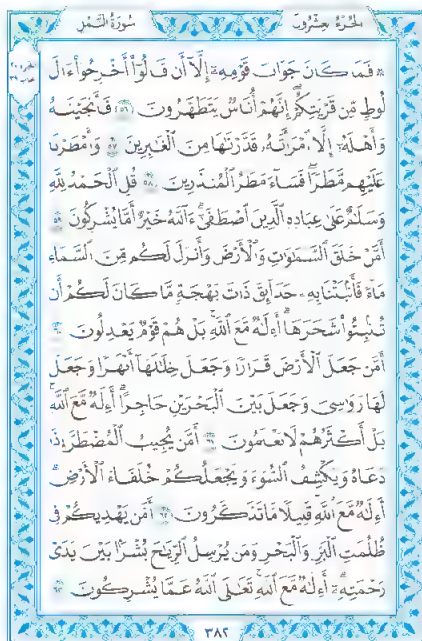 الجزء العشرون سورة النمل
۞ فَمَا كَانَ جَوَابَ قَوْمِهِ إِلَّا أَن قَالُوا أَخْرِجُوا ءَالَ
لُوطٍ مِّن قَرْيَتِكُمْ إِنَّهُمْ أُنَاسٌ يَتَطَهَّرُونَ ٥٦ فَأَنجَيْنَاهُ
وَأَهْلَهُ إِلَّا امْرَأَتَهُ قَدَّرْنَاهَا مِنَ الْغَابِرِينَ ٥٧ وَأَمْطَرْنَا
عَلَيْهِم مَّطَرًا فَسَاءَ مَطَرُ الْمُنذَرِينَ ٥٨ قُلِ الْحَمْدُ لِلَّهِ
وَسَلَامٌ عَلَىٰ عِبَادِهِ الَّذِينَ اصْطَفَىٰ ءَاللَّهُ خَيْرٌ أَمَّا يُشْرِكُونَ ٥٩
أَمَّنْ خَلَقَ السَّمَاوَاتِ وَالْأَرْضَ وَأَنزَلَ لَكُم مِّنَ السَّمَاءِ
مَاءً فَأَنبَتْنَا بِهِ حَدَائِقَ ذَاتَ بَهْجَةٍ مَّا كَانَ لَكُمْ أَن
تُنبِتُوا شَجَرَهَا أَءِلَٰهٌ مَّعَ اللَّهِ بَلْ هُمْ قَوْمٌ يَعْدِلُونَ ٦٠
أَمَّن جَعَلَ الْأَرْضَ قَرَارًا وَجَعَلَ خِلَالَهَا أَنْهَارًا وَجَعَلَ
لَهَا رَوَاسِيَ وَجَعَلَ بَيْنَ الْبَحْرَيْنِ حَاجِزًا أَءِلَٰهٌ مَّعَ اللَّهِ
بَلْ أَكْثَرُهُمْ لَا يَعْلَمُونَ ٦١ أَمَّن يُجِيبُ الْمُضْطَرَّ إِذَا
دَعَاهُ وَيَكْشِفُ السُّوءَ وَيَجْعَلُكُمْ خُلَفَاءَ الْأَرْضِ
أَءِلَٰهٌ مَّعَ اللَّهِ قَلِيلًا مَّا تَذَكَّرُونَ ٦٢ أَمَّن يَهْدِيكُمْ فِي
ظُلُمَاتِ الْبَرِّ وَالْبَحْرِ وَمَن يُرْسِلُ الرِّيَاحَ بُشْرًا بَيْنَ يَدَيْ
رَحْمَتِهِ أَءِلَٰهٌ مَّعَ اللَّهِ تَعَالَى اللَّهُ عَمَّا يُشْرِكُونَ ٦٣
٣٨٢